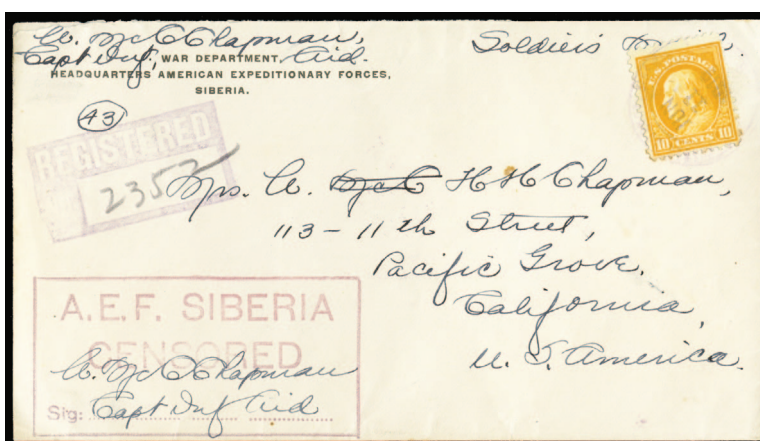 W. McC Chapman,
Capt Inf, WAR DEPARTMENT, Aid.
Soldier's
HEADQUARTERS AMERICAN EXPEDITIONARY FORCES,
SIBERIA.
43
U.S. POSTAGE
10 CENTS 10
REGISTERED
2352
Mrs. W. McC H H Chapman,
113 - 11th Street,
Pacific Grove.
California,
U. S. America.
A.E.F. SIBERIA
CENSORED
W. McC Chapman
Sig: Capt Inf Aid